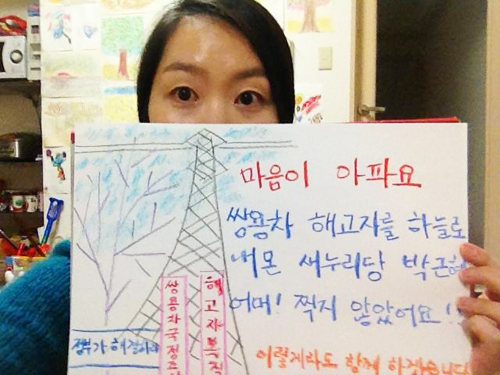 마음이 아파요
쌍용차 해고자를 하늘로
내몬 새누리당 박근혜
어머! 찍지 않았어요!
이렇게라도 함께 하겠습니다
해고자복직
쌍용차국정조
정부가 해결하라